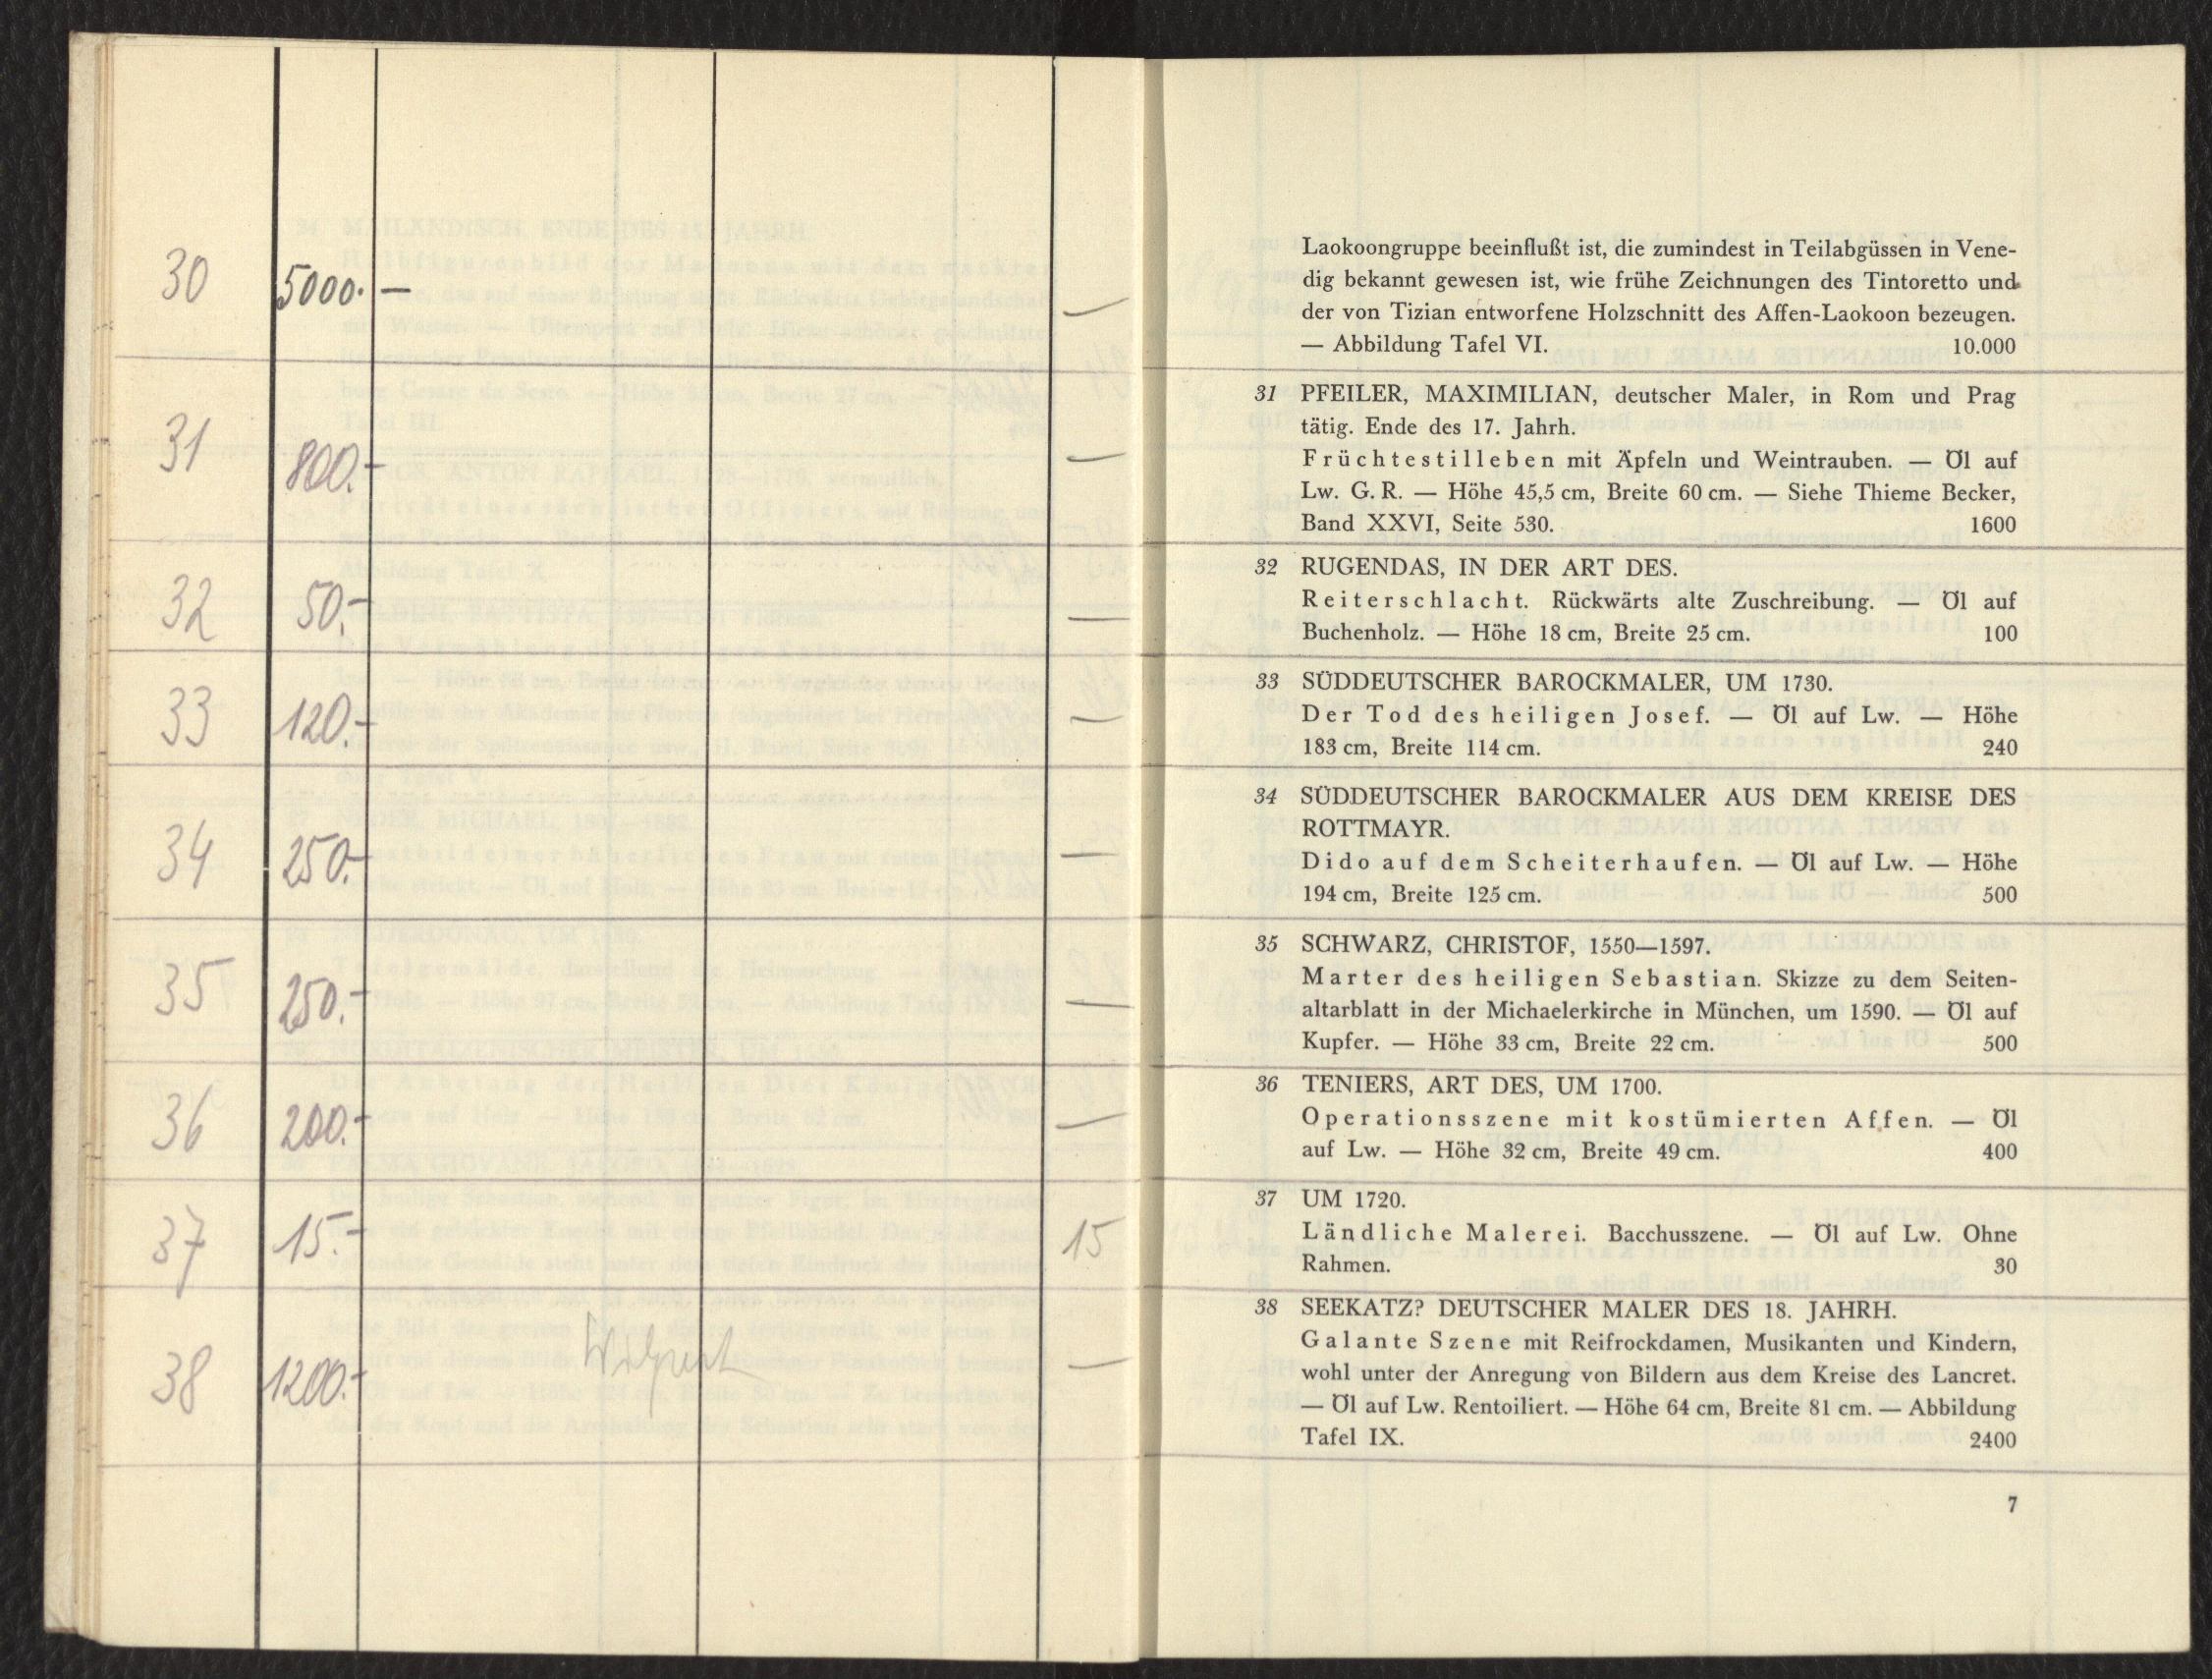 30 5000.- —
31 800.- —
32 50.- —
33 120.- —
34 250.- —
35 250.- —
36 200.- —
37 15.- 15
38 1200.- —
Laokoongruppe beeinflußt ist, die zumindest in Teilabgüssen in Vene-
dig bekannt gewesen ist, wie frühe Zeichnungen des Tintoretto und
der von Tizian entworfene Holzschnitt des Affen-Laokoon bezeugen.
— Abbildung Tafel VI. 10.000
31 PFEILER, MAXIMILIAN, deutscher Maler, in Rom und Prag
tätig. Ende des 17. Jahrh.
Früchtestilleben mit Äpfeln und Weintrauben. — Öl auf
Lw. G. R. — Höhe 45,5 cm, Breite 60 cm. — Siehe Thieme Becker,
Band XXVI, Seite 530. 1600
32 RUGENDAS, IN DER ART DES.
Reiterschlacht. Rückwärts alte Zuschreibung. — Öl auf
Buchenholz. — Höhe 18 cm, Breite 25 cm. 100
33 SÜDDEUTSCHER BAROCKMALER, UM 1730.
Der Tod des heiligen Josef. — Öl auf Lw. — Höhe
183 cm, Breite 114 cm. 240
34 SÜDDEUTSCHER BAROCKMALER AUS DEM KREISE DES
ROTTMAYR.
Dido auf dem Scheiterhaufen. — Öl auf Lw. — Höhe
194 cm, Breite 125 cm. 500
35 SCHWARZ, CHRISTOF, 1550—1597.
Marter des heiligen Sebastian. Skizze zu dem Seiten-
altarblatt in der Michaelerkirche in München, um 1590. — Öl auf
Kupfer. — Höhe 33 cm, Breite 22 cm. 500
36 TENIERS, ART DES, UM 1700.
Operationsszene mit kostümierten Affen. — Öl
auf Lw. — Höhe 32 cm, Breite 49 cm. 400
37 UM 1720.
Ländliche Malerei. Bacchusszene. — Öl auf Lw. Ohne
Rahmen. 30
38 SEEKATZ? DEUTSCHER MALER DES 18. JAHRH.
Galante Szene mit Reifrockdamen, Musikanten und Kindern,
wohl unter der Anregung von Bildern aus dem Kreise des Lancret.
— Öl auf Lw. Rentoiliert. — Höhe 64 cm, Breite 81 cm. — Abbildung
Tafel IX. 2400
7